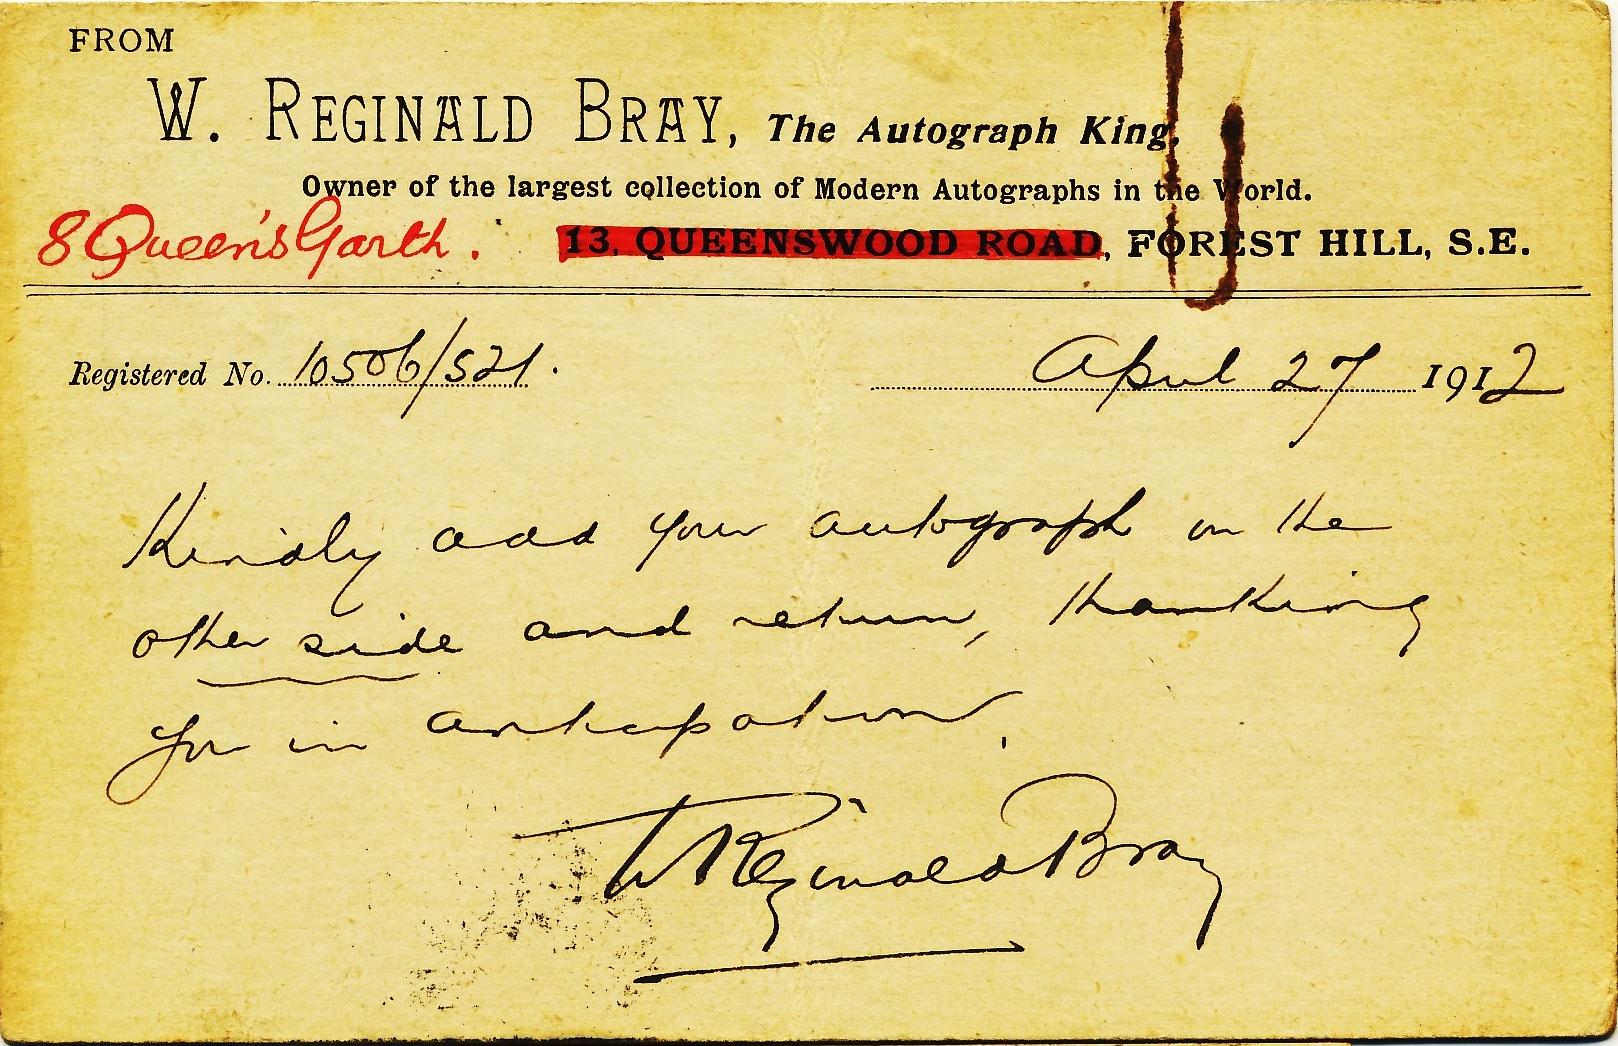 FROM
W. REGINALD BRAY, The Autograph King,
Owner of the largest collection of Modern Autographs in the World.
8 Queen's Garth. 13, QUEENSWOOD ROAD, FOREST HILL, S.E.
Registered No. 10506/521. April 27 1912
Kindly add your autograph on the
other side and return, thanking
you in anticipation.
W Reginald Bray